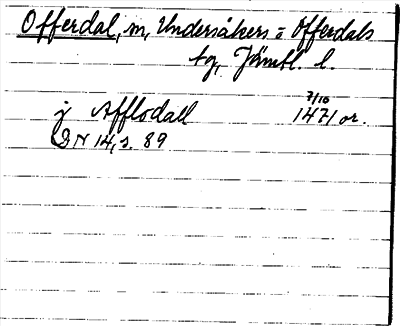 Offerdal, sn, Undersåkers o Offerdals
tg, Jämtl. l.
j Afflodall 7/10 1471 or.
DN 14, s. 89